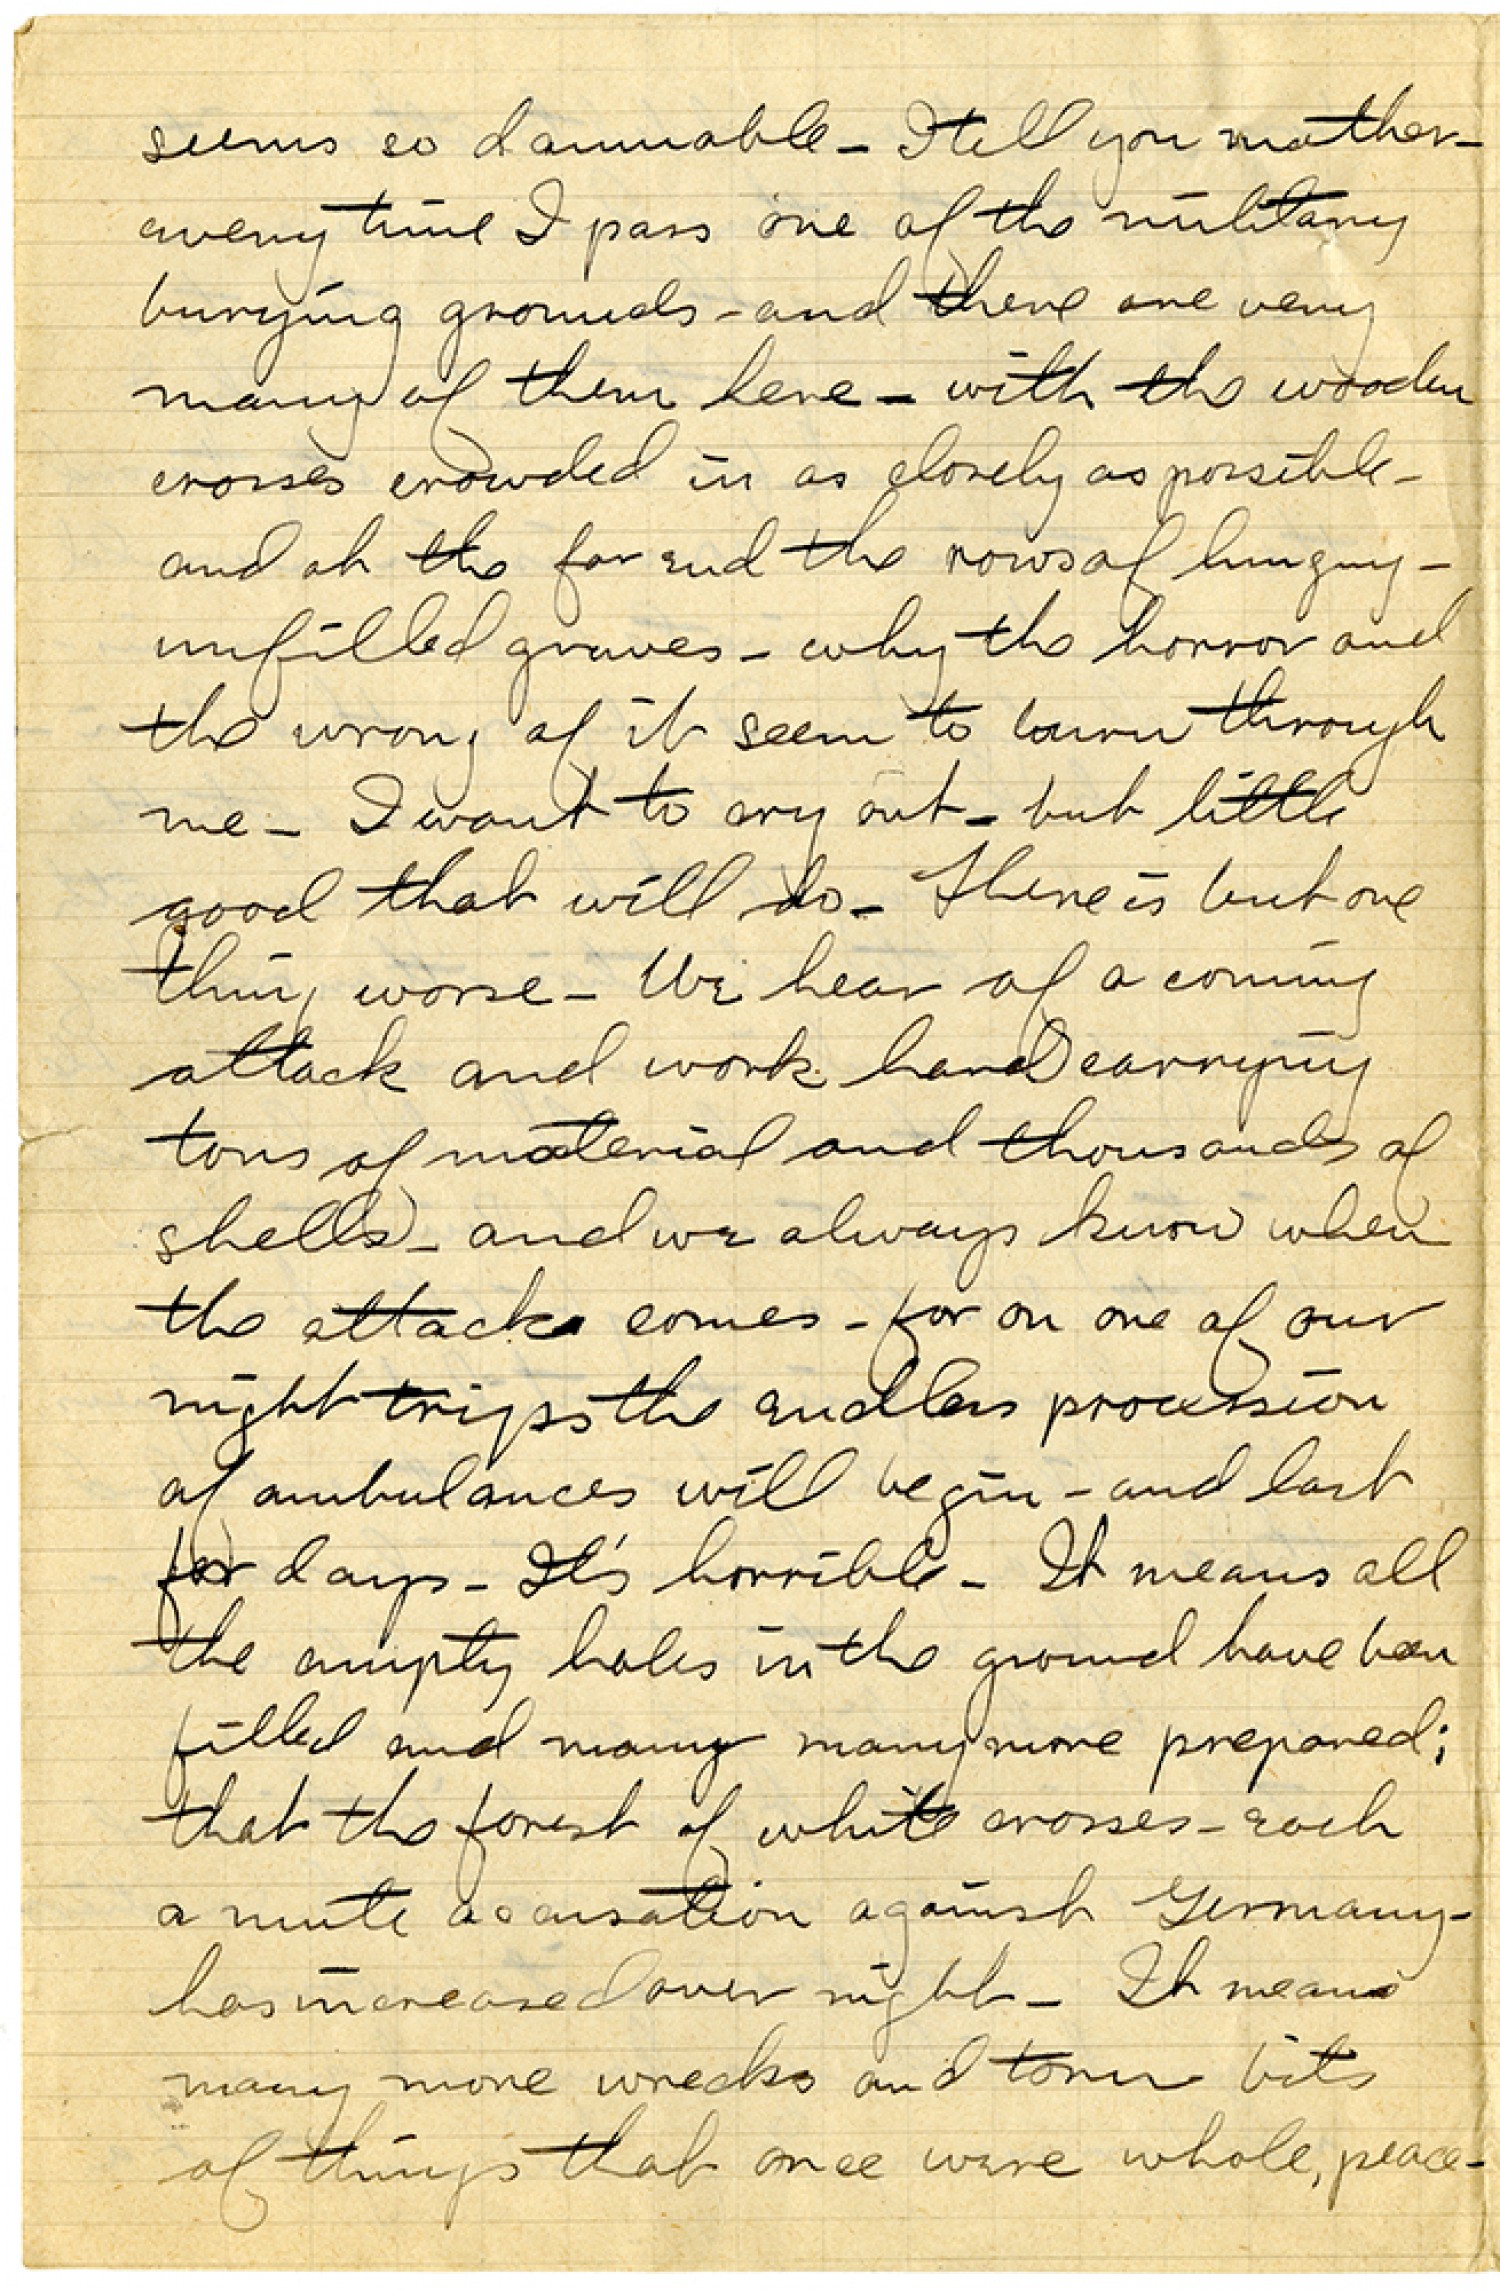 seems so damnable - I tell you mother -
every time I pass one of the military
burying grounds - and there are very
many of them here - with the wooden
crosses crowded in as closely as possible -
and at the far end the rows of hungry -
unfilled graves - why the horror and
the wrong of it seem to burn through
me - I want to cry out - but little
good that will do - There is but one
thing worse - We hear of a coming
attack and work hard carrying
tons of material and thousands of
shells - and we always know when
the attack comes - for on one of our
night trips the endless procession
of ambulances will begin - and last
for days - It's horrible - It means all
the empty holes in the ground have been
filled and many many more prepared;
that the forest of white crosses - each
a mute accusation against Germany -
has increased over night - It means
many more wrecks and torn bits
of things that once were whole, peace-